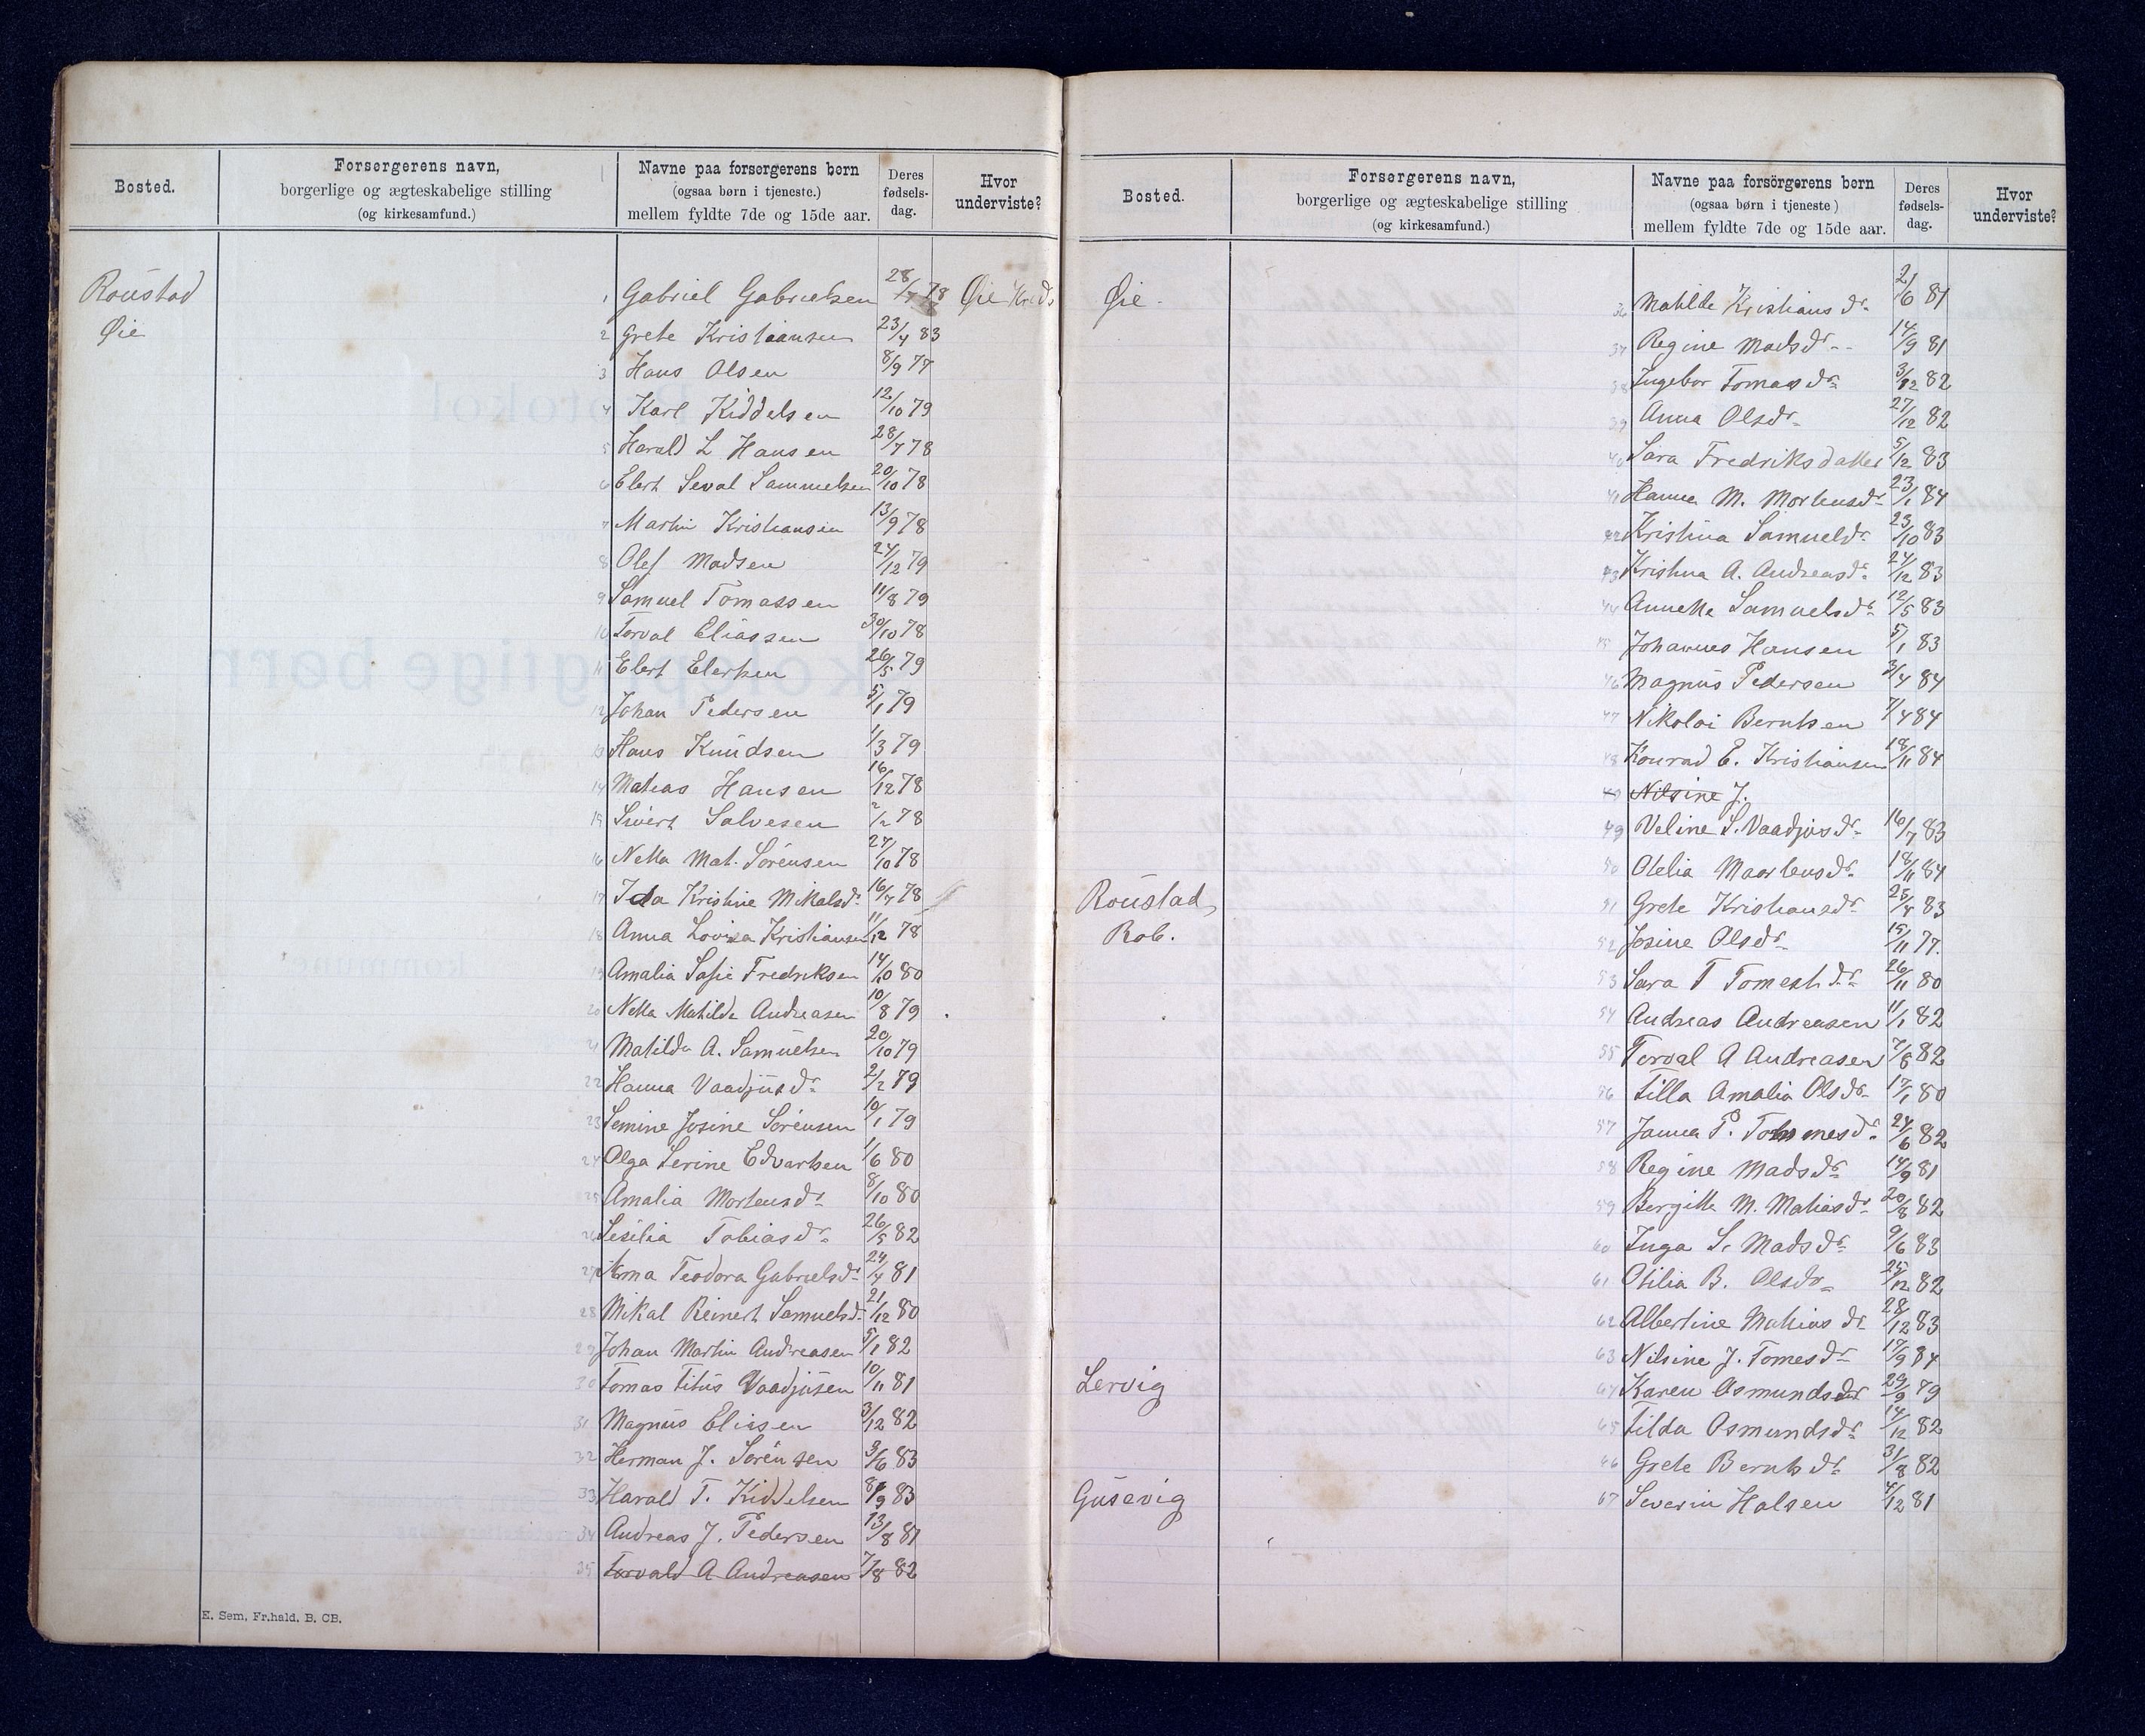 Bosted.
Forsørgerens navn,
borgerlige og ægteskabelige stilling
(og kirkesamfund.)
Navne paa forsørgerens børn
(ogsaa børn i tjeneste.)
mellem fyldte 7de og 15de aar.
Deres
fødsels-
dag.
Hvor
underviste?
Roustad 1 Gabriel Gabrielsen 28/7 78 Øie Kreds
Øie 2 Grete Kristiansen 23/4 83
3 Hans Olsen 8/9 77
4 Karl Kiddelsen 12/10 79
5 Harald L Hansen 28/7 78
6 Elert Seval Sammelsen 20/10 78
7 Martin Kristiansen 13/9 78
8 Olef Madsen 24/12 79
9 Samuel Tomassen 11/8 79
10 Torval Eliassen 30/10 78
11 Elert Elertsen 26/5 79
12 Johan Pedersen 5/1 79
13 Hans Knudsen 1/3 79
14 Matias Hansen 16/12 78
15 Sivert Salvesen 2/2 78
16 Netta Mat. Sörensen 27/10 78
17 Ida Kristine Mikalsdr. 16/7 78
18 Anna Lovisa Kristiansen 11/12 78
19 Amalia Sofie Fredriksen 14/10 80
20 Netta Matilde Andreasen 10/8 79
21 Matilda A. Samuelsen 20/10 79
22 Hanna Vaadjusdr. 2/2 79
23 Semine Josine Sörensen 10/1 79
24 Olga Serine Edvartsen 1/6 80
25 Amalia Mortensdr. 8/10 80
26 Sesilia Tobiasdr. 26/5 82
27 Anna Teodora Gabrielsdr. 24/4 81
28 Mikal Reinert Samuelsd. 21/12 80
29 Johan Martin Andreasen 5/1 82
30 Tomas Titus Vaadjusen 10/11 81
31 Magnus Eliasen 3/12 82
32 Herman J. Sörensen 3/6 83
33 Harald T. Kiddelsen 8/9 83
34 Andreas J. Pedersen 13/8 81
35 Torvald A Andreasen 7/8 82
E. Sem, Fr.hald, B. CB.
Bosted.
Forsørgerens navn,
borgerlige og ægteskabelige stilling
(og kirkesamfund.)
Navne paa forsörgerens børn
(ogsaa børn i tjeneste)
mellem fyldte 7de og 15de aar.
Deres
fødsels-
dag.
Hvor
underviste?
Øie. 36 Matilde Kristiansdr. 2/6 81
37 Regine Madsdr. 14/9 81
38 Ingebor Tomasdr. 3/12 82
39 Anna Olsdr. 27/12 82
40 Sara Fredriksdatter 5/12 83
41 Hanna M. Mortensdr. 23/1 84
42 Kristina Samueldr. 23/10 83
43 Kristina A. Andreasdr. 24/12 83
44 Annette Samuelsdr. 12/5 83
45 Johannes Hansen 5/1 83
46 Magnus Pedersen 3/4 84
47 Nikolai Berntsen 7/4 84
48 Konrad E. Kristiansen 18/11 84
49 Nilsine J.
49 Veline S. Vaadjusdr. 16/7 83
50 Otelia Maortensdr. 18/11 84
Roustad, 51 Grete Kristiansdr. 23/4 83
Rob. 52 Josine Olsdr. 15/11 77.
53 Sara T Tomesdr. 26/11 80
54 Andreas Andreasen 11/1 82
55 Torval A Andreasen 7/8 82
56 Tilla Amalia Olsdr. 17/1 80
57 Janna T. Tommesdr. 24/6 82
58 Regine Madsdr. 14/9 81
59 Bergitte M. Matiasdr. 20/8 82
60 Inga S. Madsdr. 9/6 83
61 Otilia B. Olsdr. 25/12 82
62 Albertine Matiasdr. 28/12 83
63 Nilsine J. Tomesdr. 17/9 84
Lervig 64 Karen Osmundsdr 29/9 79
65 Tilda Osmundsdr. 14/12 82
66 Grete Berntsdr. 31/8 82
Gusevig 67 Severin Halsen 4/12 81